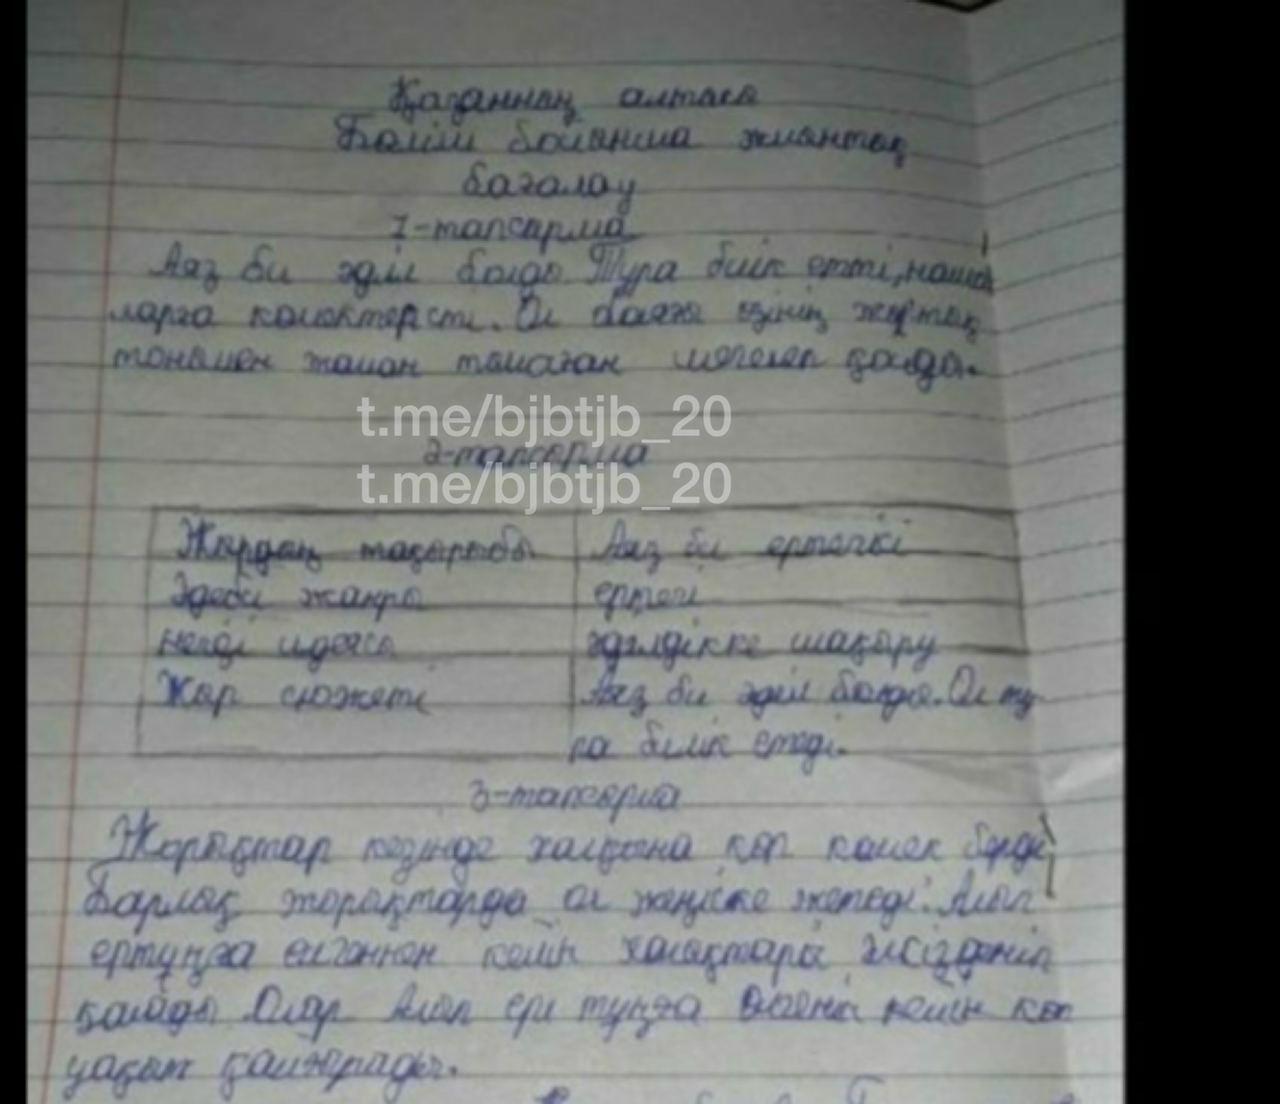 Қазанның алтысы
Бөлім бойынша жиынтық
бағалау
1-тапсырма
Аяз би әділ болды. Тура билік етті, нашар
ларға көмектересті. Ол баяғы өзінің жыртық
тонымен жаман тымағын
t.me/bjbtjb_20
2-тапсырма
t.me/bjbtjb_20
Жырдың тақырыбы Аяз би ертегісі
Әдеби жанры ертегі
негізгі идеясы әділдікке шақыру
Жыр сюжеті Аяз би әділ болды. Ол ту
ра билік етеді.
3-тапсырма
Жорықтар кезінде халқына көп көмек берді
Барлық жорықтарда ол жеңіске жетеді. Алып
ертұңға өлгеннен кейін халықтары әлсізденіп
қалады Олар Алып ер тұңға кейін көп
уақыт қайғырады.